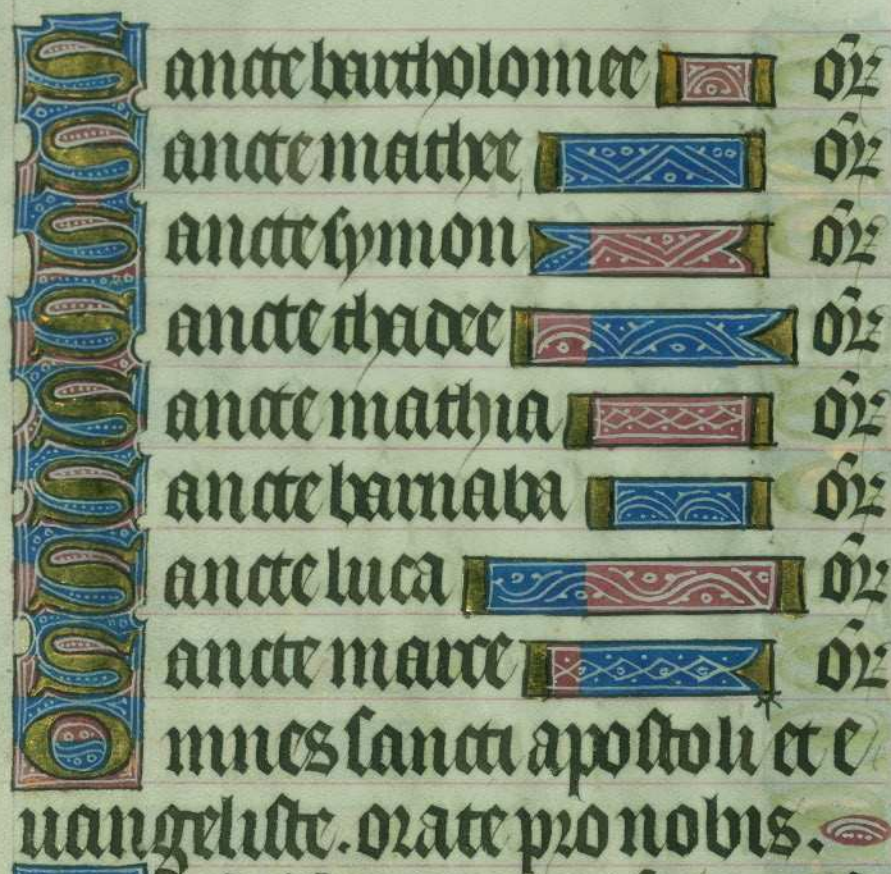 Sancte bartholomee or̄
Sancte mathee or̄
Sancte symon or̄
Sancte thadee or̄
Sancte mathia or̄
Sancte barnaba or̄
Sancte luca or̄
Sancte marce or̄
Omnes sancti apostoli et e
uangeliste. orate pro nobis.